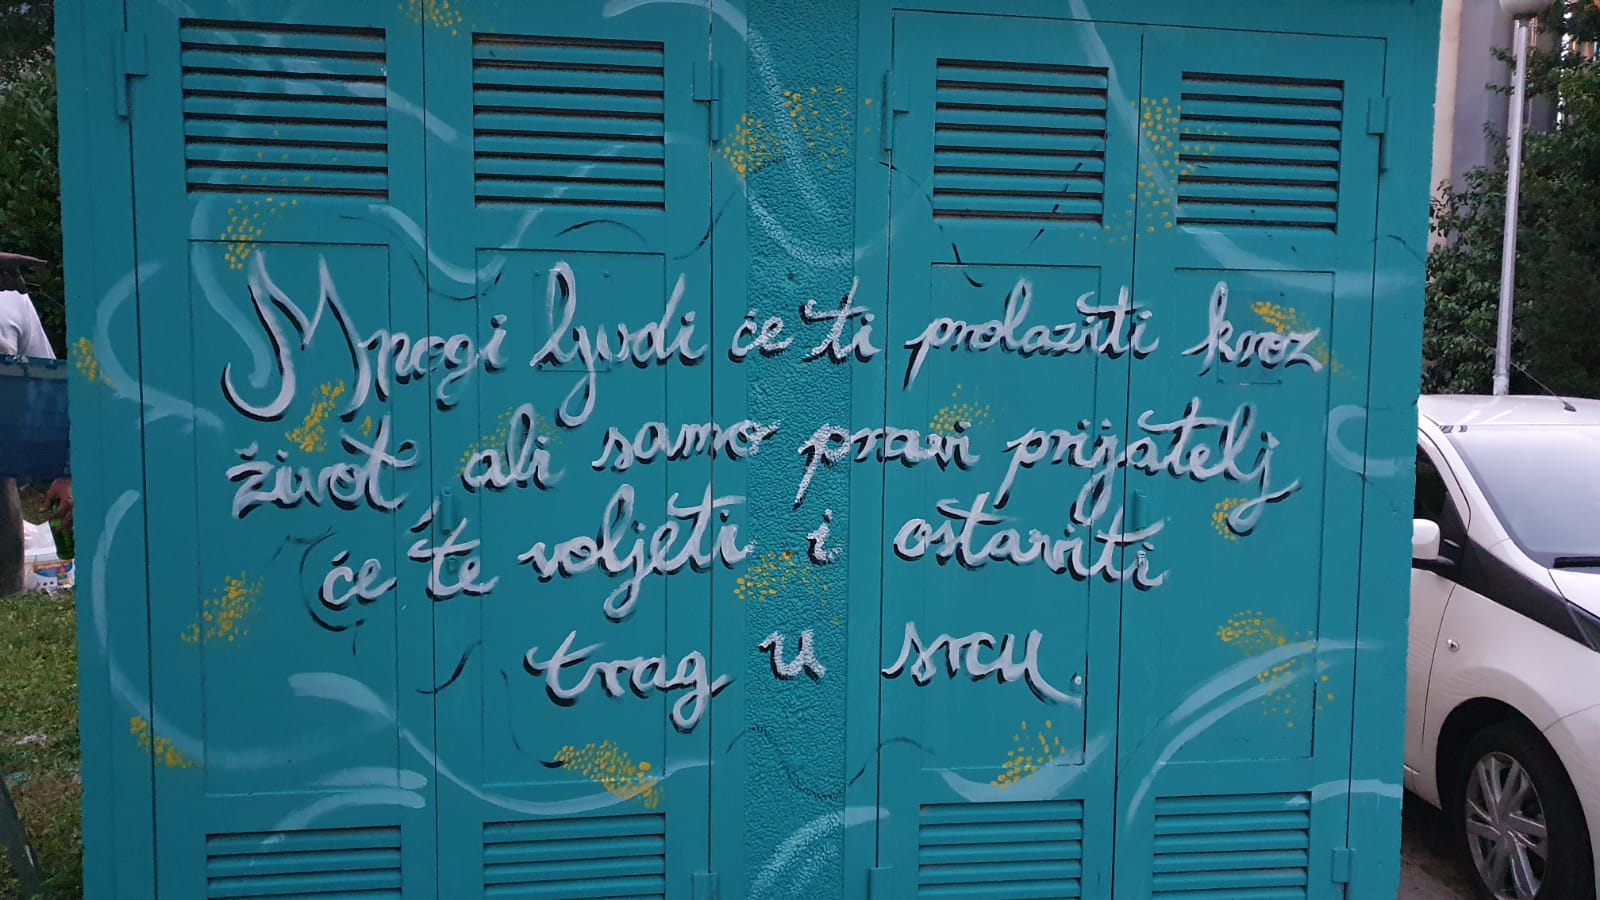 Mnogi ljudi će ti prolaziti kroz
život ali samo pravi prijatelj
će te voljeti i ostaviti
trag u srcu.